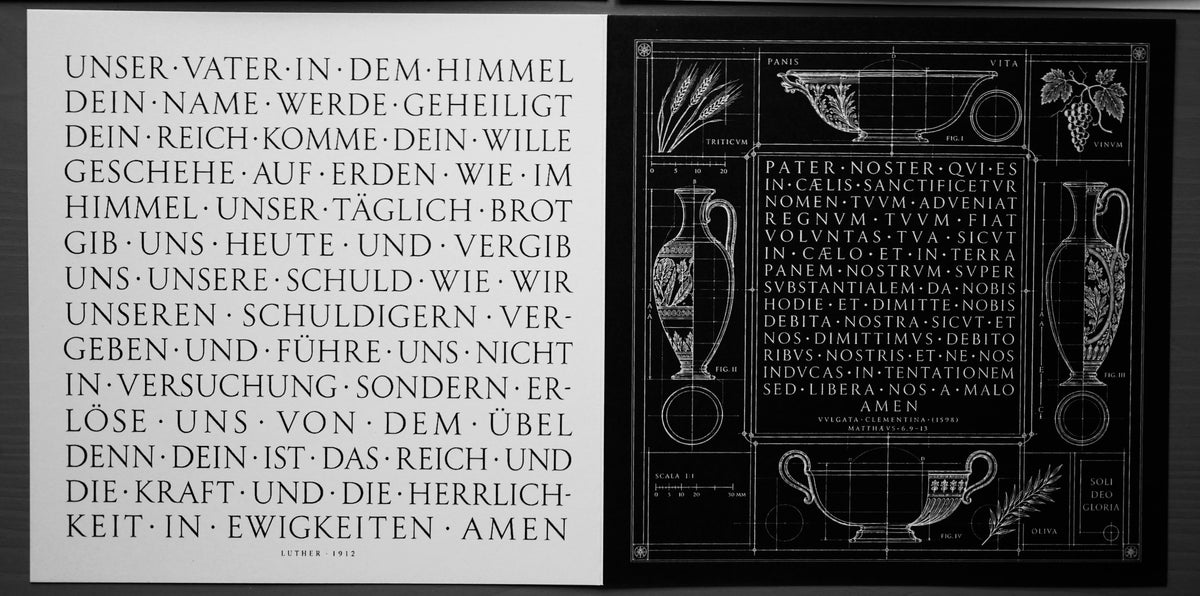 UNSER·VATER·IN·DEM·HIMMEL
DEIN·NAME·WERDE·GEHEILIGT
DEIN·REICH·KOMME·DEIN·WILLE
GESCHEHE·AUF·ERDEN·WIE·IM
HIMMEL·UNSER·TÄGLICH·BROT
GIB·UNS·HEUTE·UND·VERGIB
UNS·UNSERE·SCHULD·WIE·WIR
UNSEREN·SCHULDIGERN·VER-
GEBEN·UND·FÜHRE·UNS·NICHT
IN·VERSUCHUNG·SONDERN·ER-
LÖSE·UNS·VON·DEM·ÜBEL
DENN·DEIN·IST·DAS·REICH·UND
DIE·KRAFT·UND·DIE·HERRLICH-
KEIT·IN·EWIGKEITEN·AMEN
LUTHER·1912
PANIS
VITA
D
FIG.I
TRITICVM
VINVM
0 5 10 20
B
PATER·NOSTER·QVI·ES
IN·CÆLIS·SANCTIFICETVR
NOMEN·TVVM·ADVENIAT
REGNVM·TVVM·FIAT
VOLVNTAS·TVA·SICVT
IN·CÆLO·ET·IN·TERRA
PANEM·NOSTRVM·SVPER
SVBSTANTIALEM·DA·NOBIS
HODIE·ET·DIMITTE·NOBIS
DEBITA·NOSTRA·SICVT·ET
NOS·DIMITTIMVS·DEBITO
RIBVS·NOSTRIS·ET·NE·NOS
INDVCAS·IN·TENTATIONEM
SED·LIBERA·NOS·A·MALO
AMEN
VVLGATA·CLEMENTINA·(1598)
MATTHÆVS·6,9-13
FIG.II
FIG.III
SCALA 1:1
0 5 10 20 50 MM
FIG.IV
OLIVA
SOLI
DEO
GLORIA